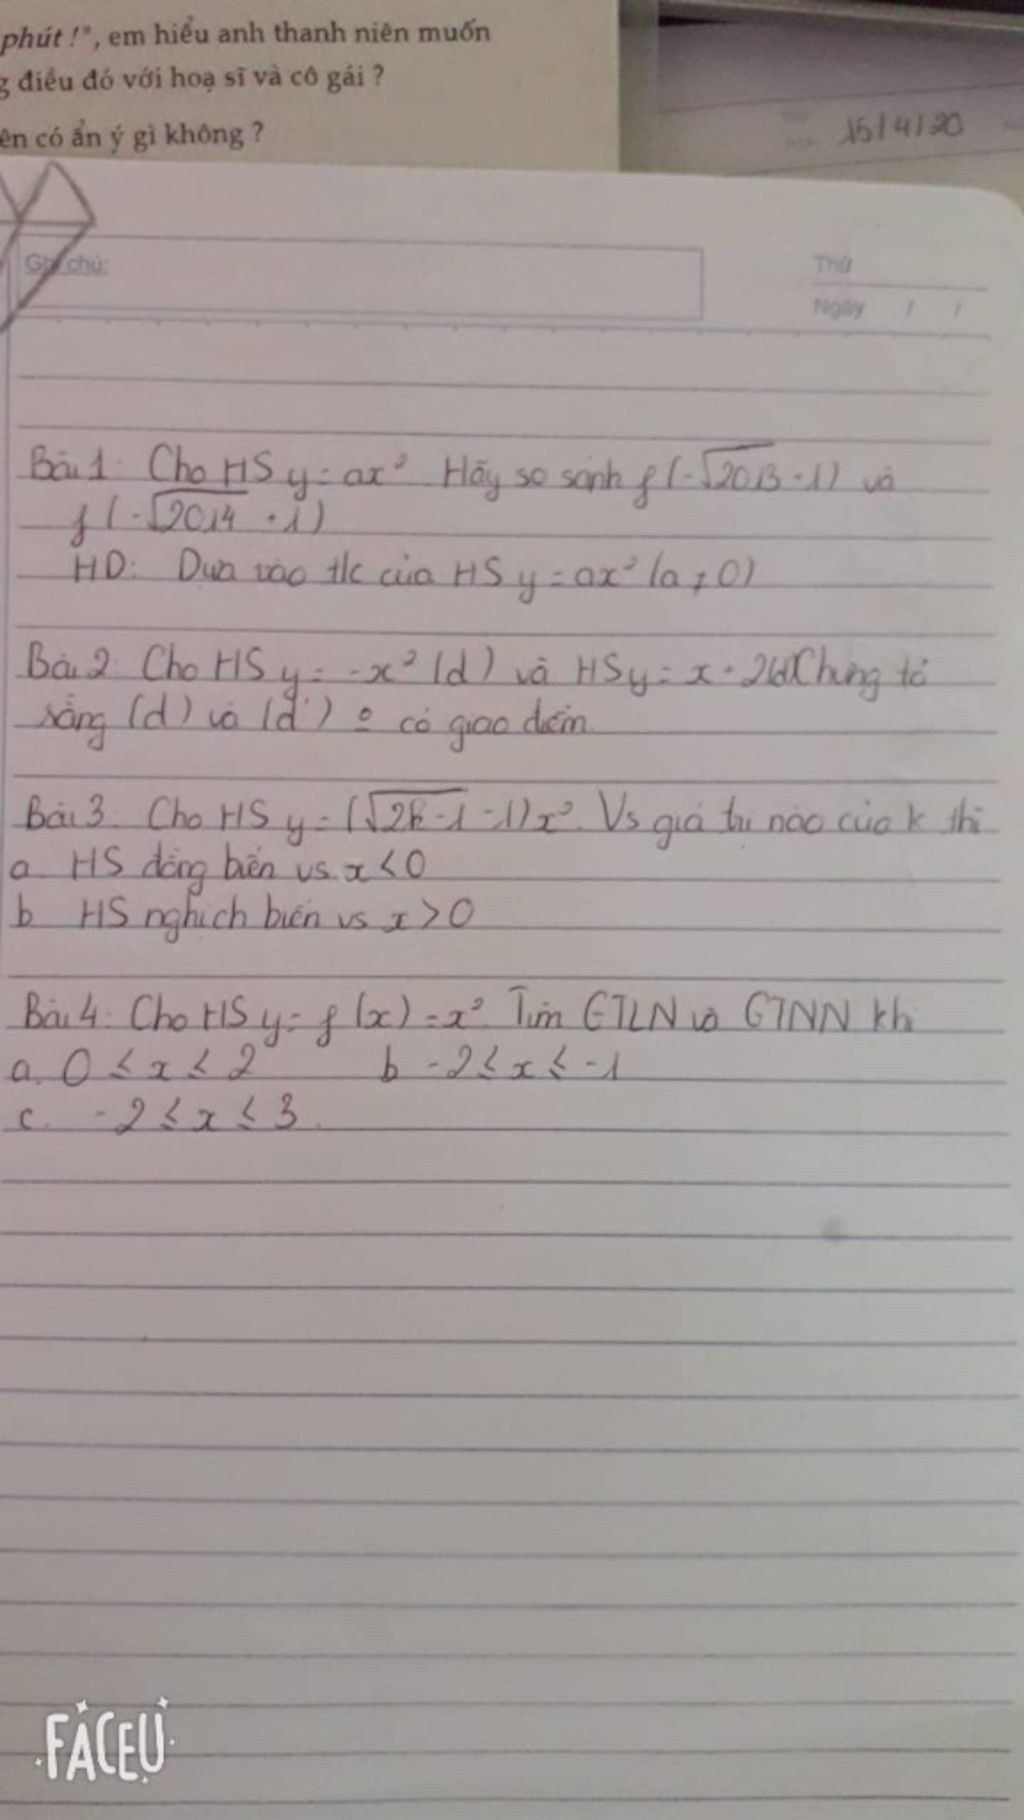 phút !", em hiểu anh thanh niên muốn
g điều đó với hoạ sĩ và cô gái ?
ên có ẩn ý gì không ?
15/4/20
Ghi chú:
Thứ
Ngày / /
Bài 1: Cho HS y = ax² Hãy so sánh f(-√2013 - 1) và
f(-√2014 - 1)
HD: Dựa vào t/c của HS y = ax² (a ≠ 0)
Bài 2: Cho HS y = -x² (d) và HS y = x - 2 (d') Chứng tỏ
rằng (d) và (d') có giao điểm.
Bài 3: Cho HS y = (√2k-1 - 1)x². Vs giá trị nào của k thì
a HS đồng biến vs x < 0
b HS nghịch biến vs x > 0
Bài 4: Cho HS y = f(x) = x². Tìm GTLN và GTNN khi
a. 0 ≤ x ≤ 2 b -2 ≤ x ≤ -1
c. -2 ≤ x ≤ 3.
FACEU